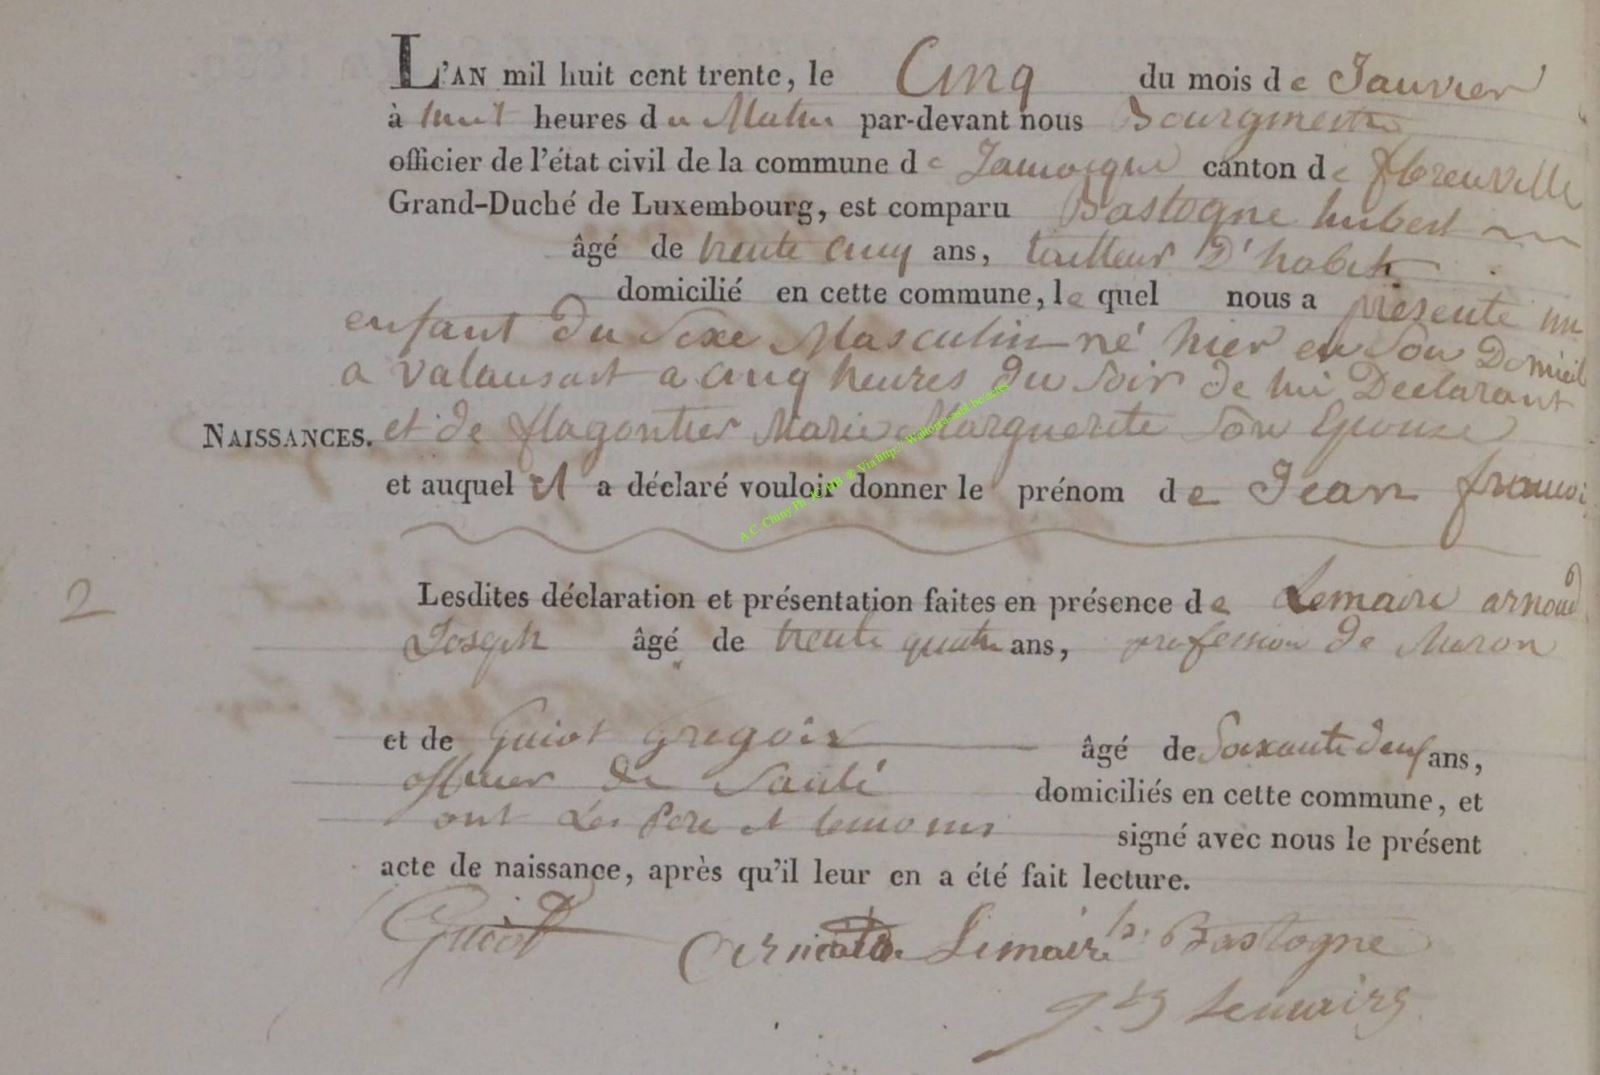 L'AN mil huit cent trente, le Cinq du mois de Janvier
à huit heures du Matin par-devant nous Bourgmestre
officier de l'état civil de la commune de Jamoigne canton de florenville
Grand-Duché de Luxembourg, est comparu Bastogne hubert
âgé de trente cinq ans, tailleur D'habit
domicilié en cette commune, le quel nous a présenté un
enfant du Sexe Masculin né hier en Son Domicil
a valansart a cinq heures du Soir de lui Declarant
NAISSANCES. et de flagontier Marie Marguerite Son Epouse
et auquel il a déclaré vouloir donner le prénom de Jean francoi
A.C. Chiny Ph. via http://
2
Lesdites déclaration et présentation faites en présence de Lemaire arnoud
Joseph âgé de trente quatre ans, profession de Maron
et de Guiot Gregoir âgé de Soixante deux ans,
officier de Santé domiciliés en cette commune, et
ont Les Pere et temoins signé avec nous le présent
acte de naissance, après qu'il leur en a été fait lecture.
Guiot Lemaire h. Bastogne
Lemaire